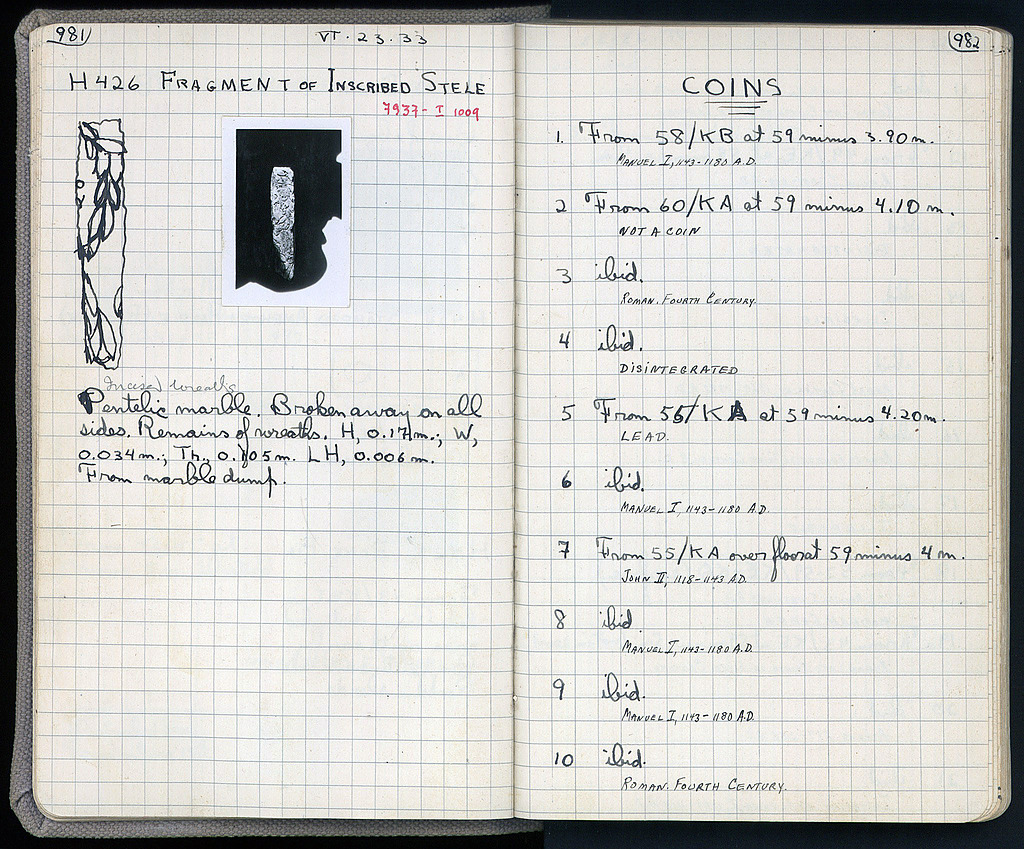 981
VI · 23 · 33
H 426 FRAGMENT OF INSCRIBED STELE
7937 - I 1009
Incised wreaths
Pentelic marble. Broken away on all
sides. Remains of wreaths. H, 0.17m.; W,
0.034m.; Th., 0.105m. LH, 0.006m.
From marble dump.
982
COINS
1. From 58/KB at 59 minus 3.90m.
MANUEL I, 1143-1180 A.D.
2 From 60/KA at 59 minus 4.10m.
NOT A COIN
3 ibid.
ROMAN. FOURTH CENTURY.
4 ibid.
DISINTEGRATED
5 From 56/KA at 59 minus 4.20m.
LEAD.
6 ibid.
MANUEL I, 1143-1180 A.D.
7 From 55/KA over floor at 59 minus 4m.
JOHN II, 1118-1143 A.D.
8 ibid
MANUEL I, 1143-1180 A.D.
9 ibid.
MANUEL I, 1143-1180 A.D.
10 ibid.
ROMAN. FOURTH CENTURY.